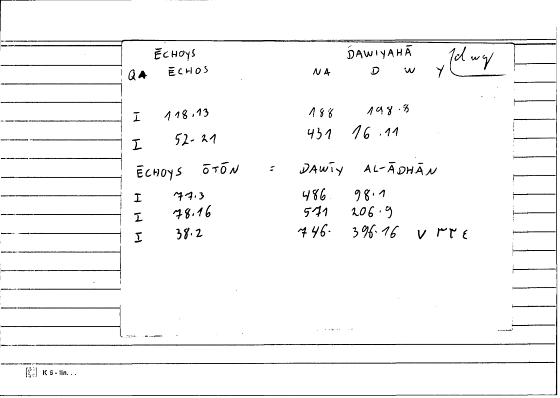 ĒCHOYS DAWIYAHĀ dwy
QA ĒCHOS NA D W Y
I 118.13 188 198.8
I 52-21 431 16.11
ĒCHOYS ŌTŌN = DAWĪY AL-ĀDHĀN
I 77.3 486 98.1
I 78.16 571 206.9
I 38.2 746. 396.16
K 5 - lin. . .